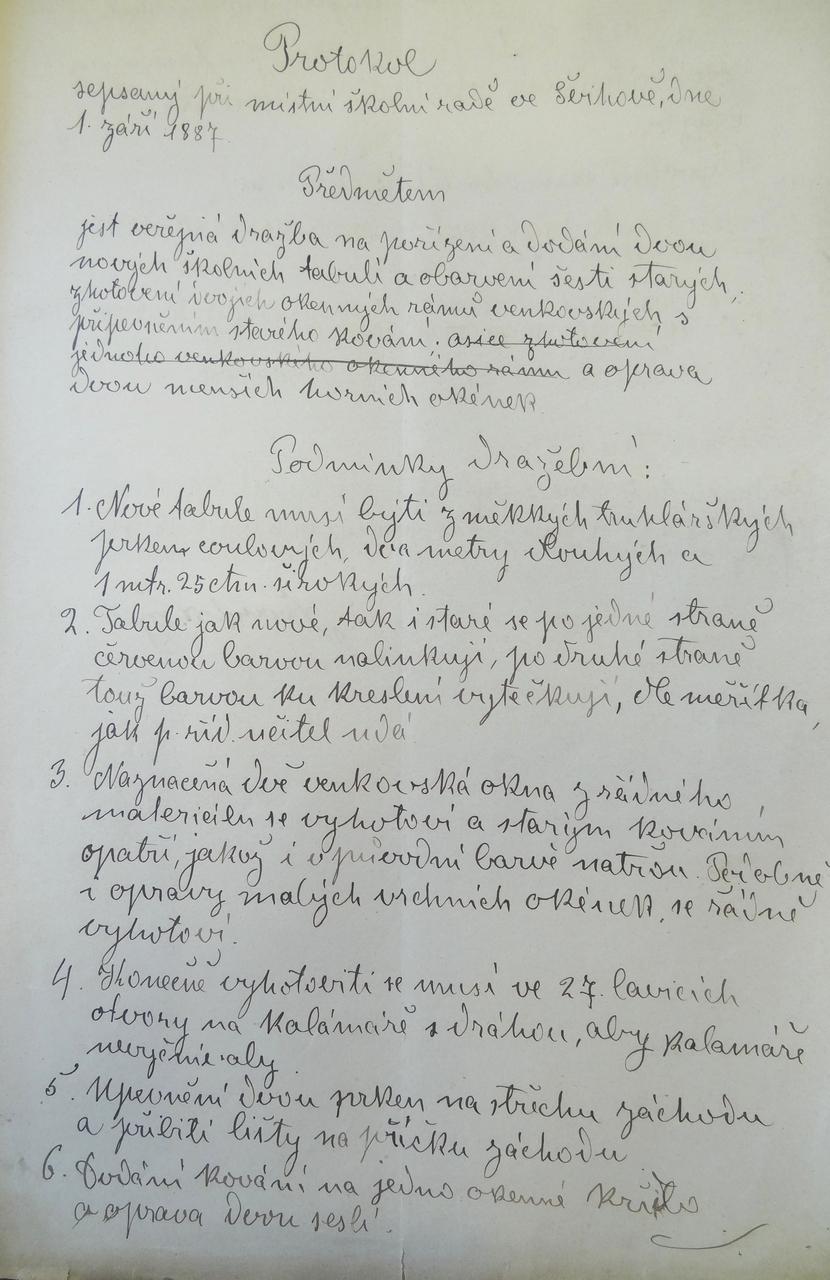 Protokol
sepsaný při místní školní radě ve Sěrhově, dne
1. září 1887
Předmětem
jest veřejná dražba na pořízení a dodání dvou
nových školních tabulí a obarvení šesti starých,
zhotovení dvojích okenných rámů venkovských s
připevněním starého kování. asice zhotovení
jednoho venkovského okenného rámu a oprava
dvou menších horních okének
Podmínky dražební:
1. Nové tabule musí býti z měkkých truhlářských
prken coulových, dva metry dlouhých a
1 mtr. 25 ctm. širokých.
2. Tabule jak nové, tak i staré se po jedné straně
červenou barvou nalinkují, po druhé straně
touž barvou ku kreslení vytečkují, dle měřítka,
jak p. říd. učitel udá
3. Naznačená dvě venkovská okna z řádného
materiálu se vyhotoví a starým kováním
opatří, jakož i v původní barvě natrou. Podobně
i opravy malých vrchních okének, se řádně
vyhotoví.
4. Konečně vyhotoviti se musí ve 27. lavicích
otvory na kalamáře s dráhou, aby kalamáře
nevyčnívaly
5. Upevnění dvou prken na střechu záchodu
a přibití lišty na příčku záchodu
6. Dodání kování na jedno okenné křídlo
a oprava dvou seslí.